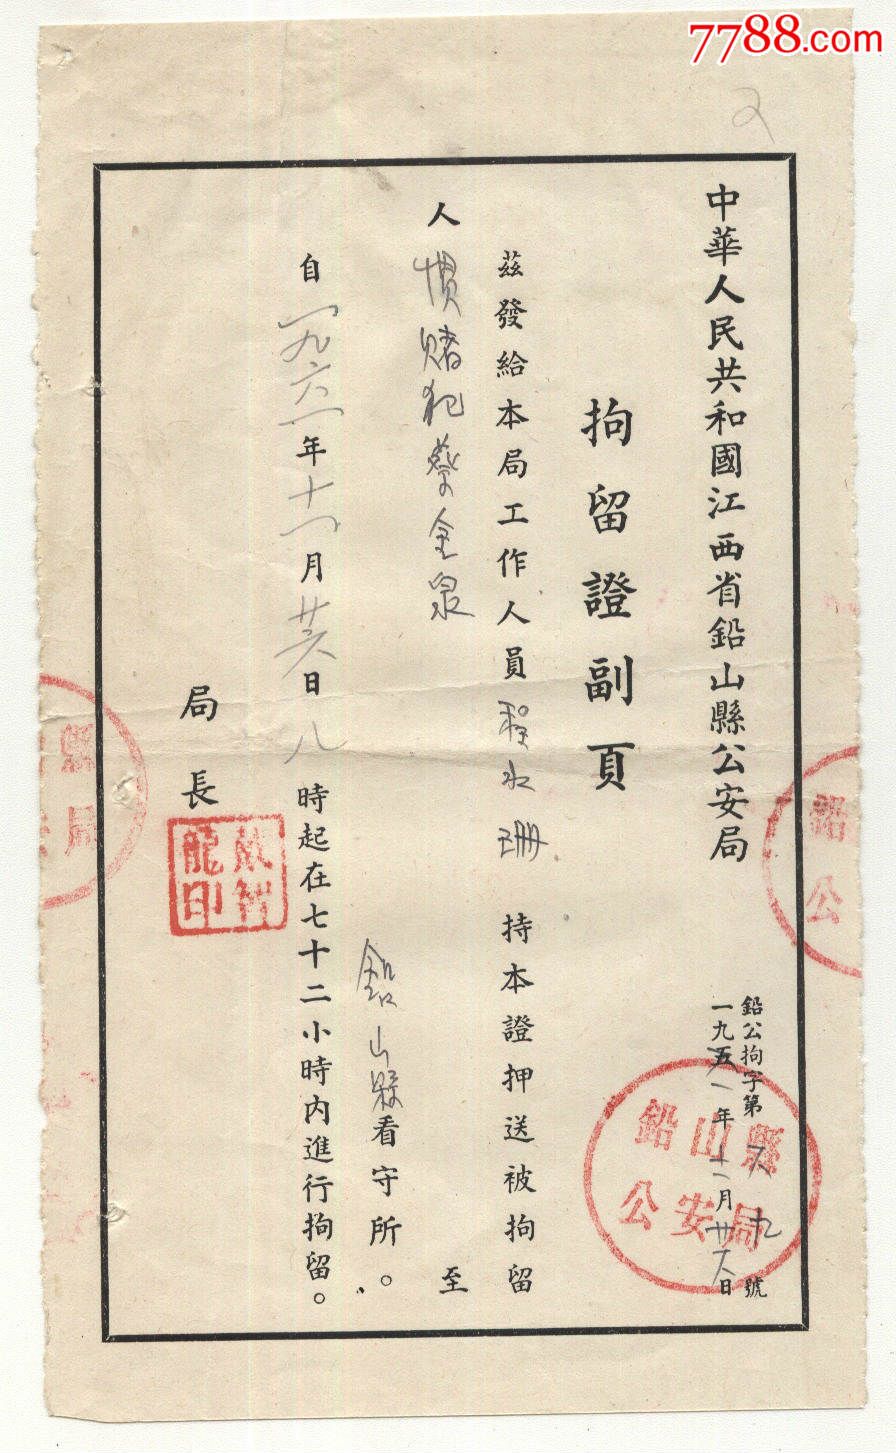 7788.com
又
中華人民共和國江西省鉛山縣公安局
鉛公拘字第六九號
一九六一年十一月廿六日
拘留證副頁
茲發給本局工作人員程水珊持本證押送被拘留
人慣賭犯蔡金泉至
鉛山縣看守所。
自一九六一年十一月廿六日八時起在七十二小時內進行拘留。
局長
龍印
鉛山縣
公安局
鉛
公
縣
局